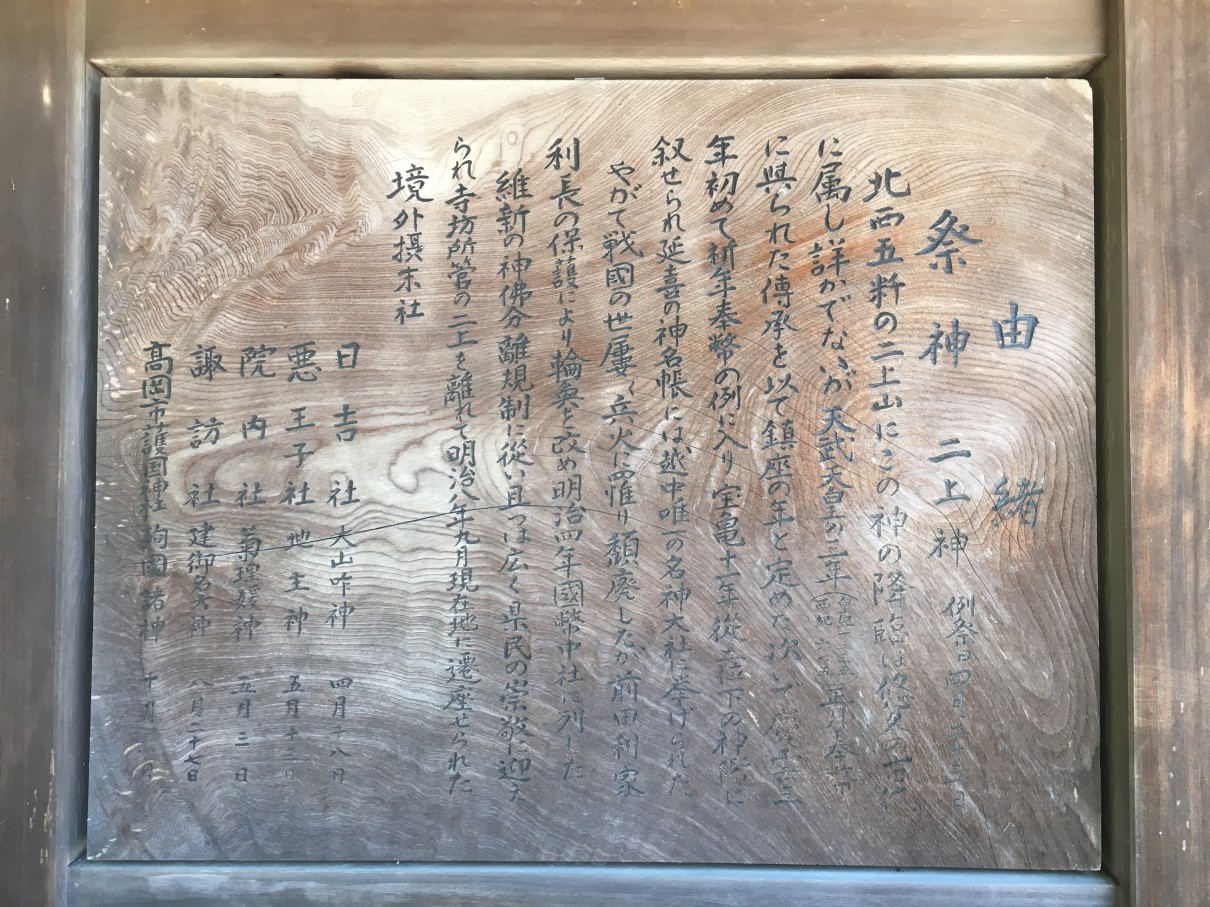 由緒
祭神 二上神 例祭日 四月二十三日
北西五粁の二上山にこの神の降臨は悠久の古に
に属し詳かでないが天武天皇の二年 五月奉幣
に與られた傳承を以て鎮座の年と定めた次で 三
年初めて祈年奉幣の例に入り宝亀十一年從五位下の神階に
叙せられ延喜の神名帳には越中唯一の名神大社に挙げられた
やがて戦國の世屢〻兵火に罹り頽廃したが前田利家
利長の保護により輪奐を改め明治四年國幣中社に列した
維新の神佛分離規制に從い且つは広く県民の崇敬に迎え
られ寺坊所管の二上を離れて明治八年九月現在地に遷座せられた
境外摂末社
日吉社 大山咋神 四月十八日
悪王子社 地主神 五月十三日
院内社 菊理媛神 五月三日
諏訪社 建御名方神 八月二十七日
高岡市護國神社 殉國諸神 十月 日